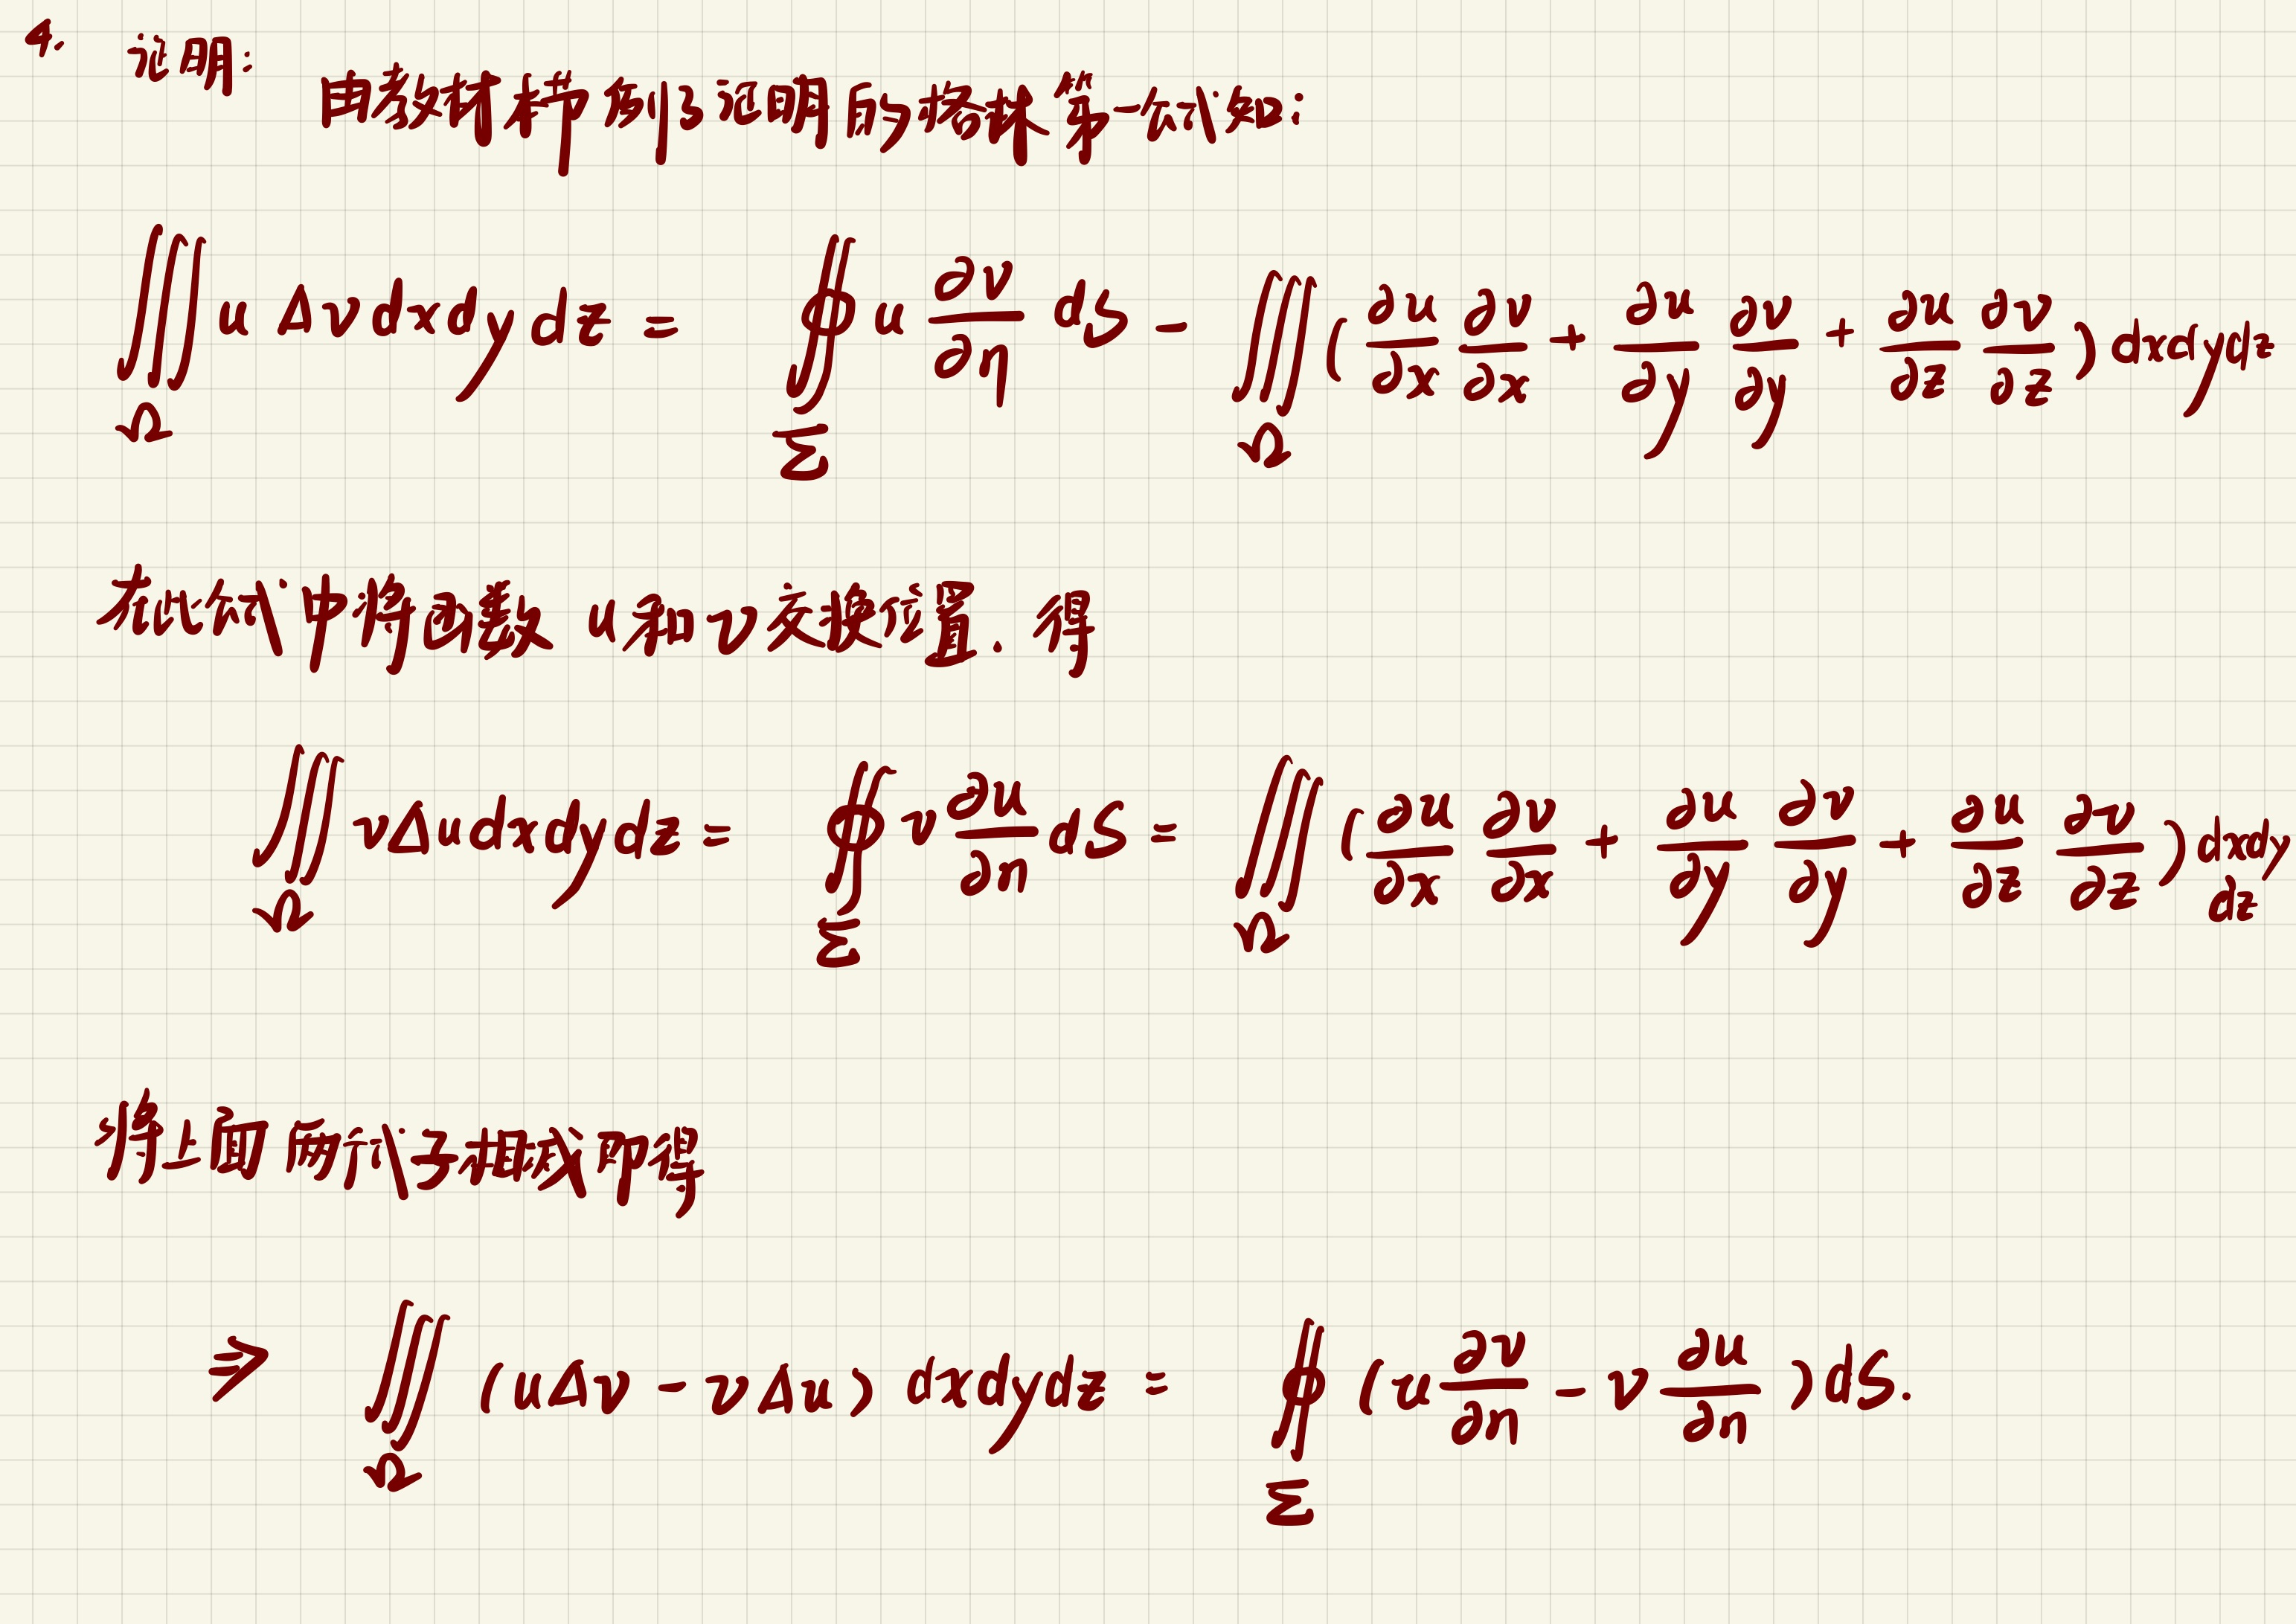 4. 证明:
由教材本节例3证明的格林第一公式知:
∭_Ω u Δv dxdydz = ∯_Σ u ∂v/∂η dS − ∭_Ω (∂u/∂x ∂v/∂x + ∂u/∂y ∂v/∂y + ∂u/∂z ∂v/∂z) dxdydz
在此公式中将函数 u和v交换位置. 得
∭_Ω vΔu dxdydz = ∯_Σ v ∂u/∂n dS = ∭_Ω (∂u/∂x ∂v/∂x + ∂u/∂y ∂v/∂y + ∂u/∂z ∂v/∂z) dxdydz
将上面两式子相减即得
⇒ ∭_Ω (uΔv − vΔu) dxdydz = ∯_Σ (u ∂v/∂n − v ∂u/∂n) dS.